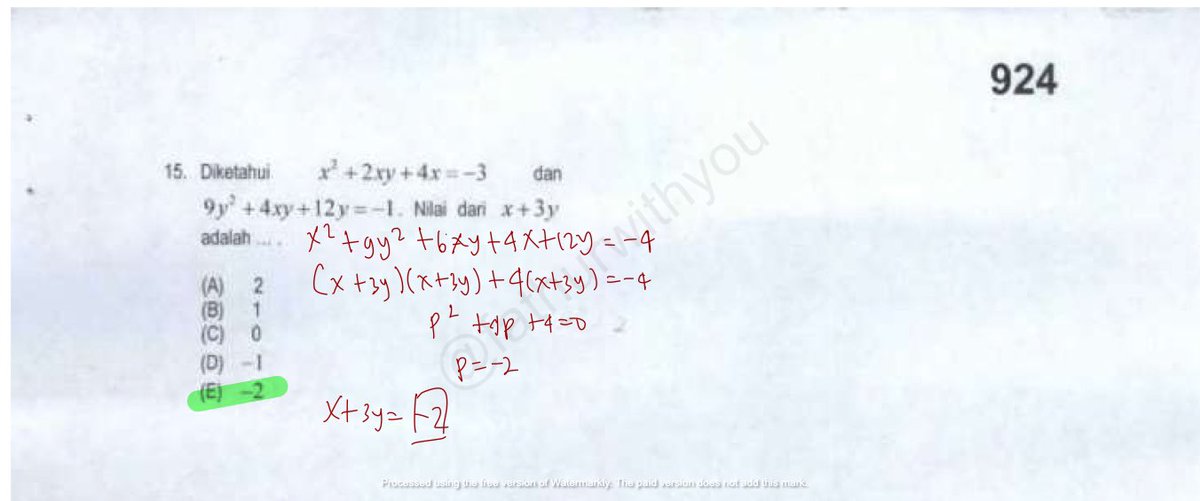 924
15. Diketahui x² + 2xy + 4x = -3 dan
9y² + 4xy + 12y = -1. Nilai dari x + 3y
adalah ....
x² + 9y² + 6xy + 4x + 12y = -4
(x + 3y)(x + 3y) + 4(x + 3y) = -4
(A) 2
(B) 1
(C) 0
(D) -1
(E) -2
p² + 4p + 4 = 0
p = -2
x + 3y = -2
Processed using the free version of Watermarkly. The paid version does not add this mark.